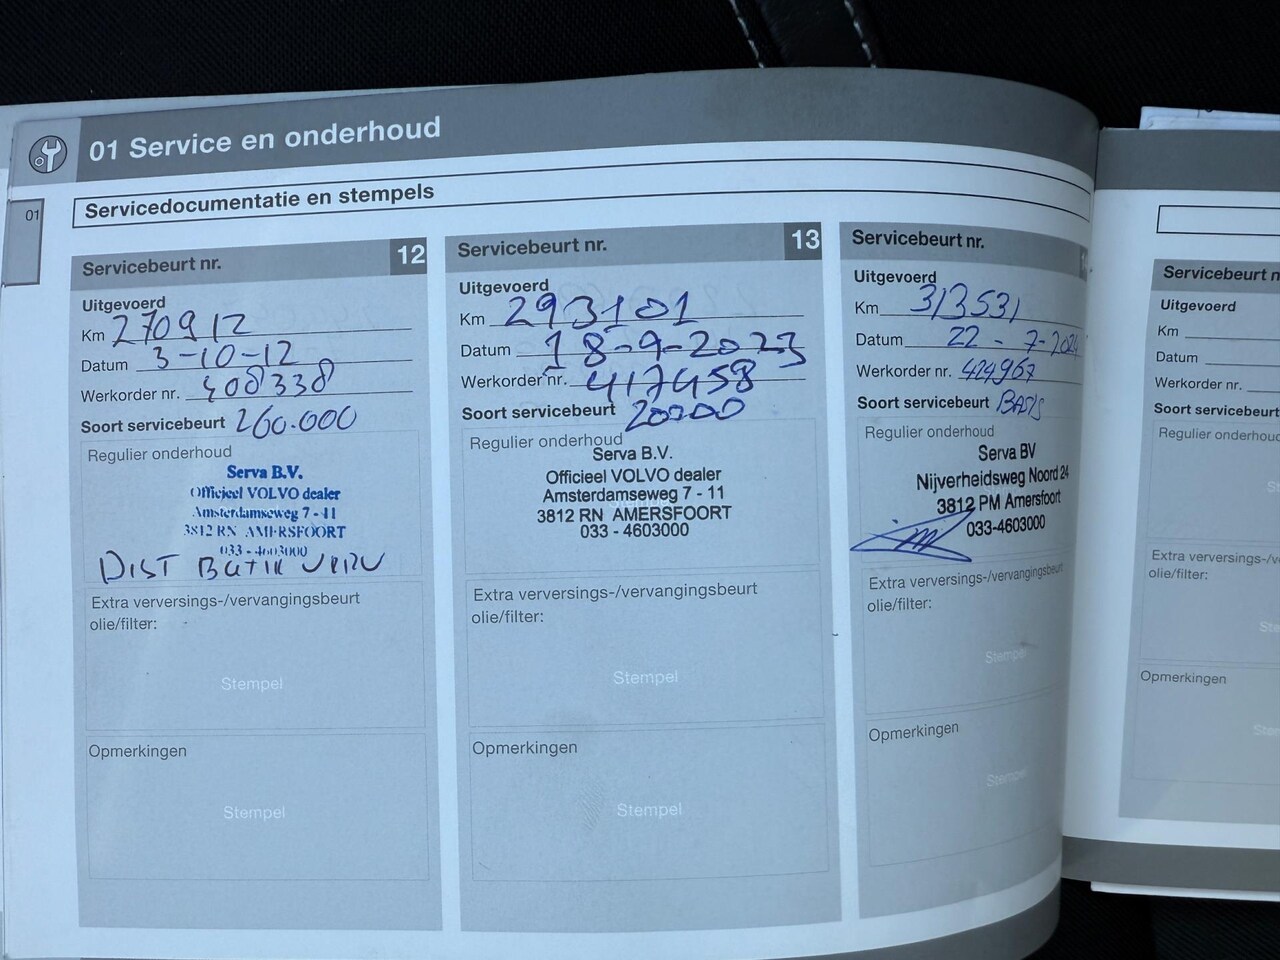 01 Service en onderhoud
01
Servicedocumentatie en stempels
Servicebeurt nr. 12
Uitgevoerd
Km 270912
Datum 3-10-12
Werkorder nr. 408338
Soort servicebeurt 260.000
Regulier onderhoud
Serva B.V.
Officieel VOLVO dealer
Amsterdamseweg 7 - 11
3812 RN AMERSFOORT
033 - 4603000
DIST
Extra verversings-/vervangingsbeurt
olie/filter:
Stempel
Opmerkingen
Stempel
Servicebeurt nr. 13
Uitgevoerd
Km 293101
Datum 18-9-2023
Werkorder nr. 417458
Soort servicebeurt 20000
Regulier onderhoud
Serva B.V.
Officieel VOLVO dealer
Amsterdamseweg 7 - 11
3812 RN AMERSFOORT
033 - 4603000
Extra verversings-/vervangingsbeurt
olie/filter:
Stempel
Opmerkingen
Stempel
Servicebeurt nr.
Uitgevoerd
Km 313531
Datum 22 - 7-2024
Werkorder nr. 424967
Soort servicebeurt BASIS
Regulier onderhoud
Serva BV
Nijverheidsweg Noord 24
3812 PM Amersfoort
033-4603000
Extra verversings-/vervangingsbeurt
olie/filter:
Stempel
Opmerkingen
Stempel
Servicebeurt n
Uitgevoerd
Km
Datum
Werkorder nr.
Soort servicebeurt
Regulier onderhoud
St
Extra verversings-/v
olie/filter:
Ste
Opmerkingen
Ste